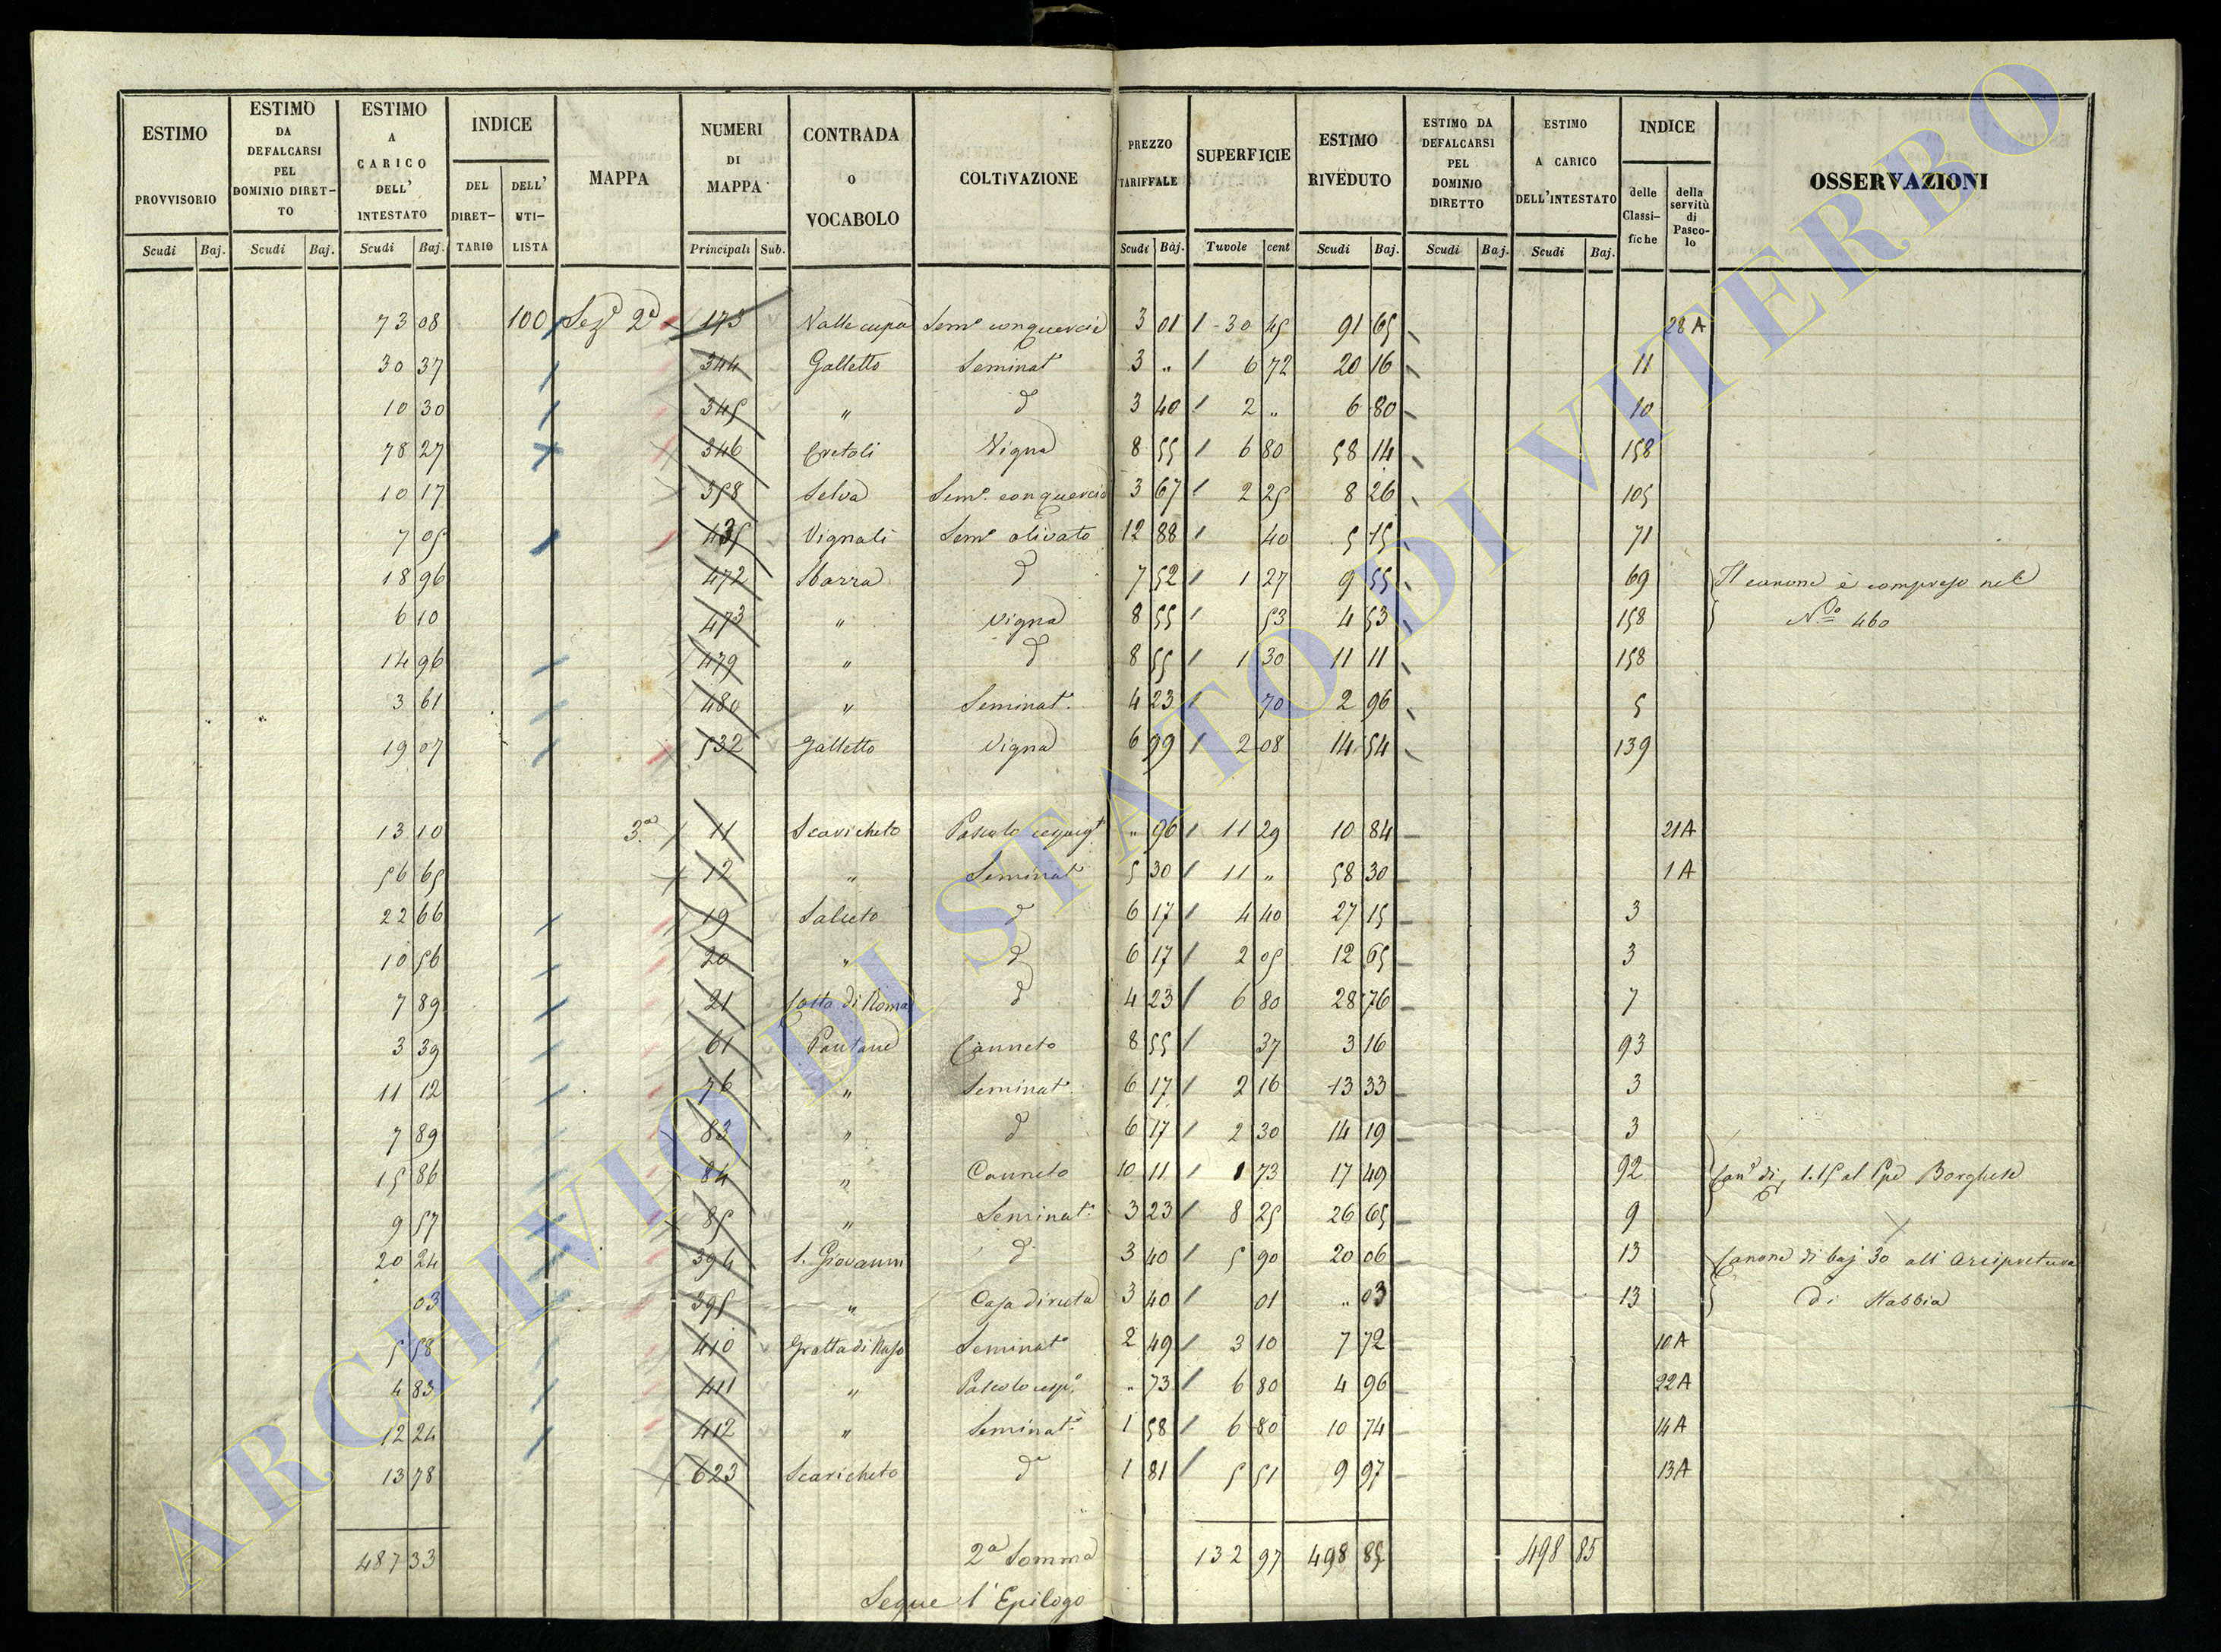 ESTIMO PROVVISORIO | ESTIMO DA DEFALCARSI PEL DOMINIO DIRET-TO | ESTIMO A CARICO DELL' INTESTATO | INDICE | MAPPA | NUMERI DI MAPPA | CONTRADA O VOCABOLO | COLTIVAZIONE | PREZZO TARIFFALE | SUPERFICIE | ESTIMO RIVEDUTO | ESTIMO DA DEFALCARSI PEL DOMINIO DIRETTO | ESTIMO A CARICO DELL'INTESTATO | INDICE | OSSERVAZIONI
DEL DIRET-TARIO | DELL' UTI-LISTA | delle Classi-fiche | della servitù di Pasco-lo
Scudi | Baj. | Scudi | Baj. | Scudi | Baj. | Principali | Sub. | Scudi | Baj. | Tuvole | cent | Scudi | Baj. | Scudi | Baj. | Scudi | Baj.
73 08 100 Sezᵉ 2ª 173 Valle cupa Semᵒ con querciè 3 01 30 45 91 65 28 A
30 37 344 Galletto Seminatᵒ 3 " 6 72 20 16 11
10 30 345 " dᵒ 3 40 2 " 6 80 10
78 27 346 Cretoli Vigna 8 55 6 80 58 14 158
10 17 358 Selva Semᵒ con querciè 3 67 2 25 8 26 105
7 05 435 Vignali Semᵒ olivato 12 88 40 5 15 71
18 96 472 Sbarra dᵒ 7 52 1 27 9 55 69 Il canone è compreso nel
6 10 473 " Vigna 8 55 53 4 53 158 Nᵒ 460
14 96 479 " dᵒ 8 55 1 30 11 11 158
3 61 480 " Seminatᵒ 4 23 70 2 96 5
19 07 532 Galletto Vigna 6 99 2 08 14 54 139
13 10 3ª 11 Scaricheto Pascolo cespugᵗᵒ " 96 11 29 10 84 21 A
56 65 12 " Seminatᵒ 5 30 11 " 58 30 1 A
22 66 19 Saliceto dᵒ 6 17 4 40 27 15 3
10 56 20 " dᵒ 6 17 2 05 12 65 3
7 89 21 Costa di Roma dᵒ 4 23 6 80 28 76 7
3 39 61 Pantane Canneto 8 55 37 3 16 93
11 12 76 " Seminatᵒ 6 17 2 16 13 33 3
7 89 83 " dᵒ 6 17 2 30 14 19 3
15 86 84 " Canneto 10 11 1 73 17 49 92 Canᵉ di 1.15 al Ppe Borghese
9 57 85 " Seminatᵒ 3 23 8 25 26 65 9
20 24 394 S. Giovanni dᵒ 3 40 5 90 20 06 13 Canone di baj 30 all' Arcipretura
03 395 " Casa diruta 3 40 01 " 03 13 di Stabbia
5 58 410 Grotta di Naso Seminatᵒ 2 49 3 10 7 72 10 A
4 83 411 " Pascolo cespᵒ " 73 6 80 4 96 22 A
12 24 412 " Seminatᵒ 1 58 6 80 10 74 14 A
13 78 623 Scaricheto dᵒ 1 81 5 51 9 97 13 A
487 33 2ª Somma 132 97 498 85 498 85
Segue l'Epilogo
ARCHIVIO DI STATO DI VITERBO